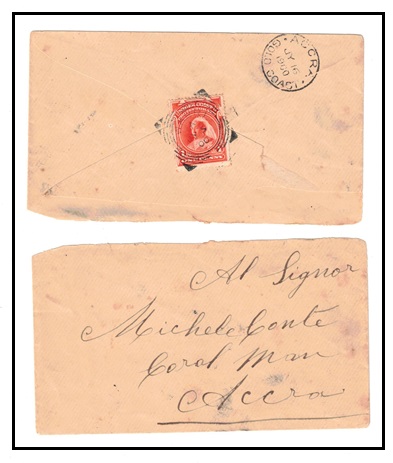 ACCRA
JY 16
1900
GOLD COAST
Al Signor
Michele Conte
Coral Man
Accra